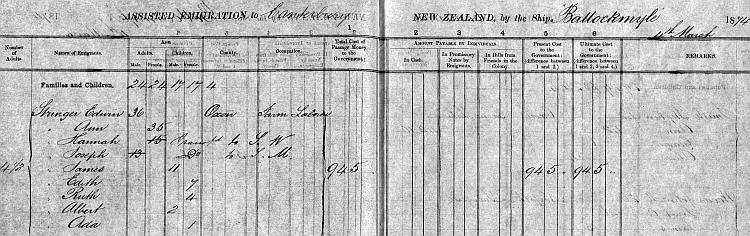 ASSISTED EMIGRATION to Canterbury NEW ZEALAND, by the Ship, Ballochmyle 1874
4th March
1 2 3 4 5 6
Number of Adults. Names of Emigrants. Age. Adults. Children. Male. Female. Male. Female. County. Occupation. Total Cost of Passage Money to the Government. Amount Payable by Individuals. In Cash. In Promissory Notes by Emigrants. In Bills from Friends in the Colony. Present Cost to the Government: (difference between 1 and 2.) Ultimate Cost to the Government: (difference between 1 and 2, 3 and 4.) REMARKS.
Families and Children. 24 24 17 17 4
Stringer Edwin 36 Oxon Farm Laborer
" Ann 35
" Hannah 15 to S. W
" Joseph 13 Do to S. M
4½ " James 11 94 5 94 5 94 5
" Edith 7
" Ruth 4
" Albert 2
" Ada 1